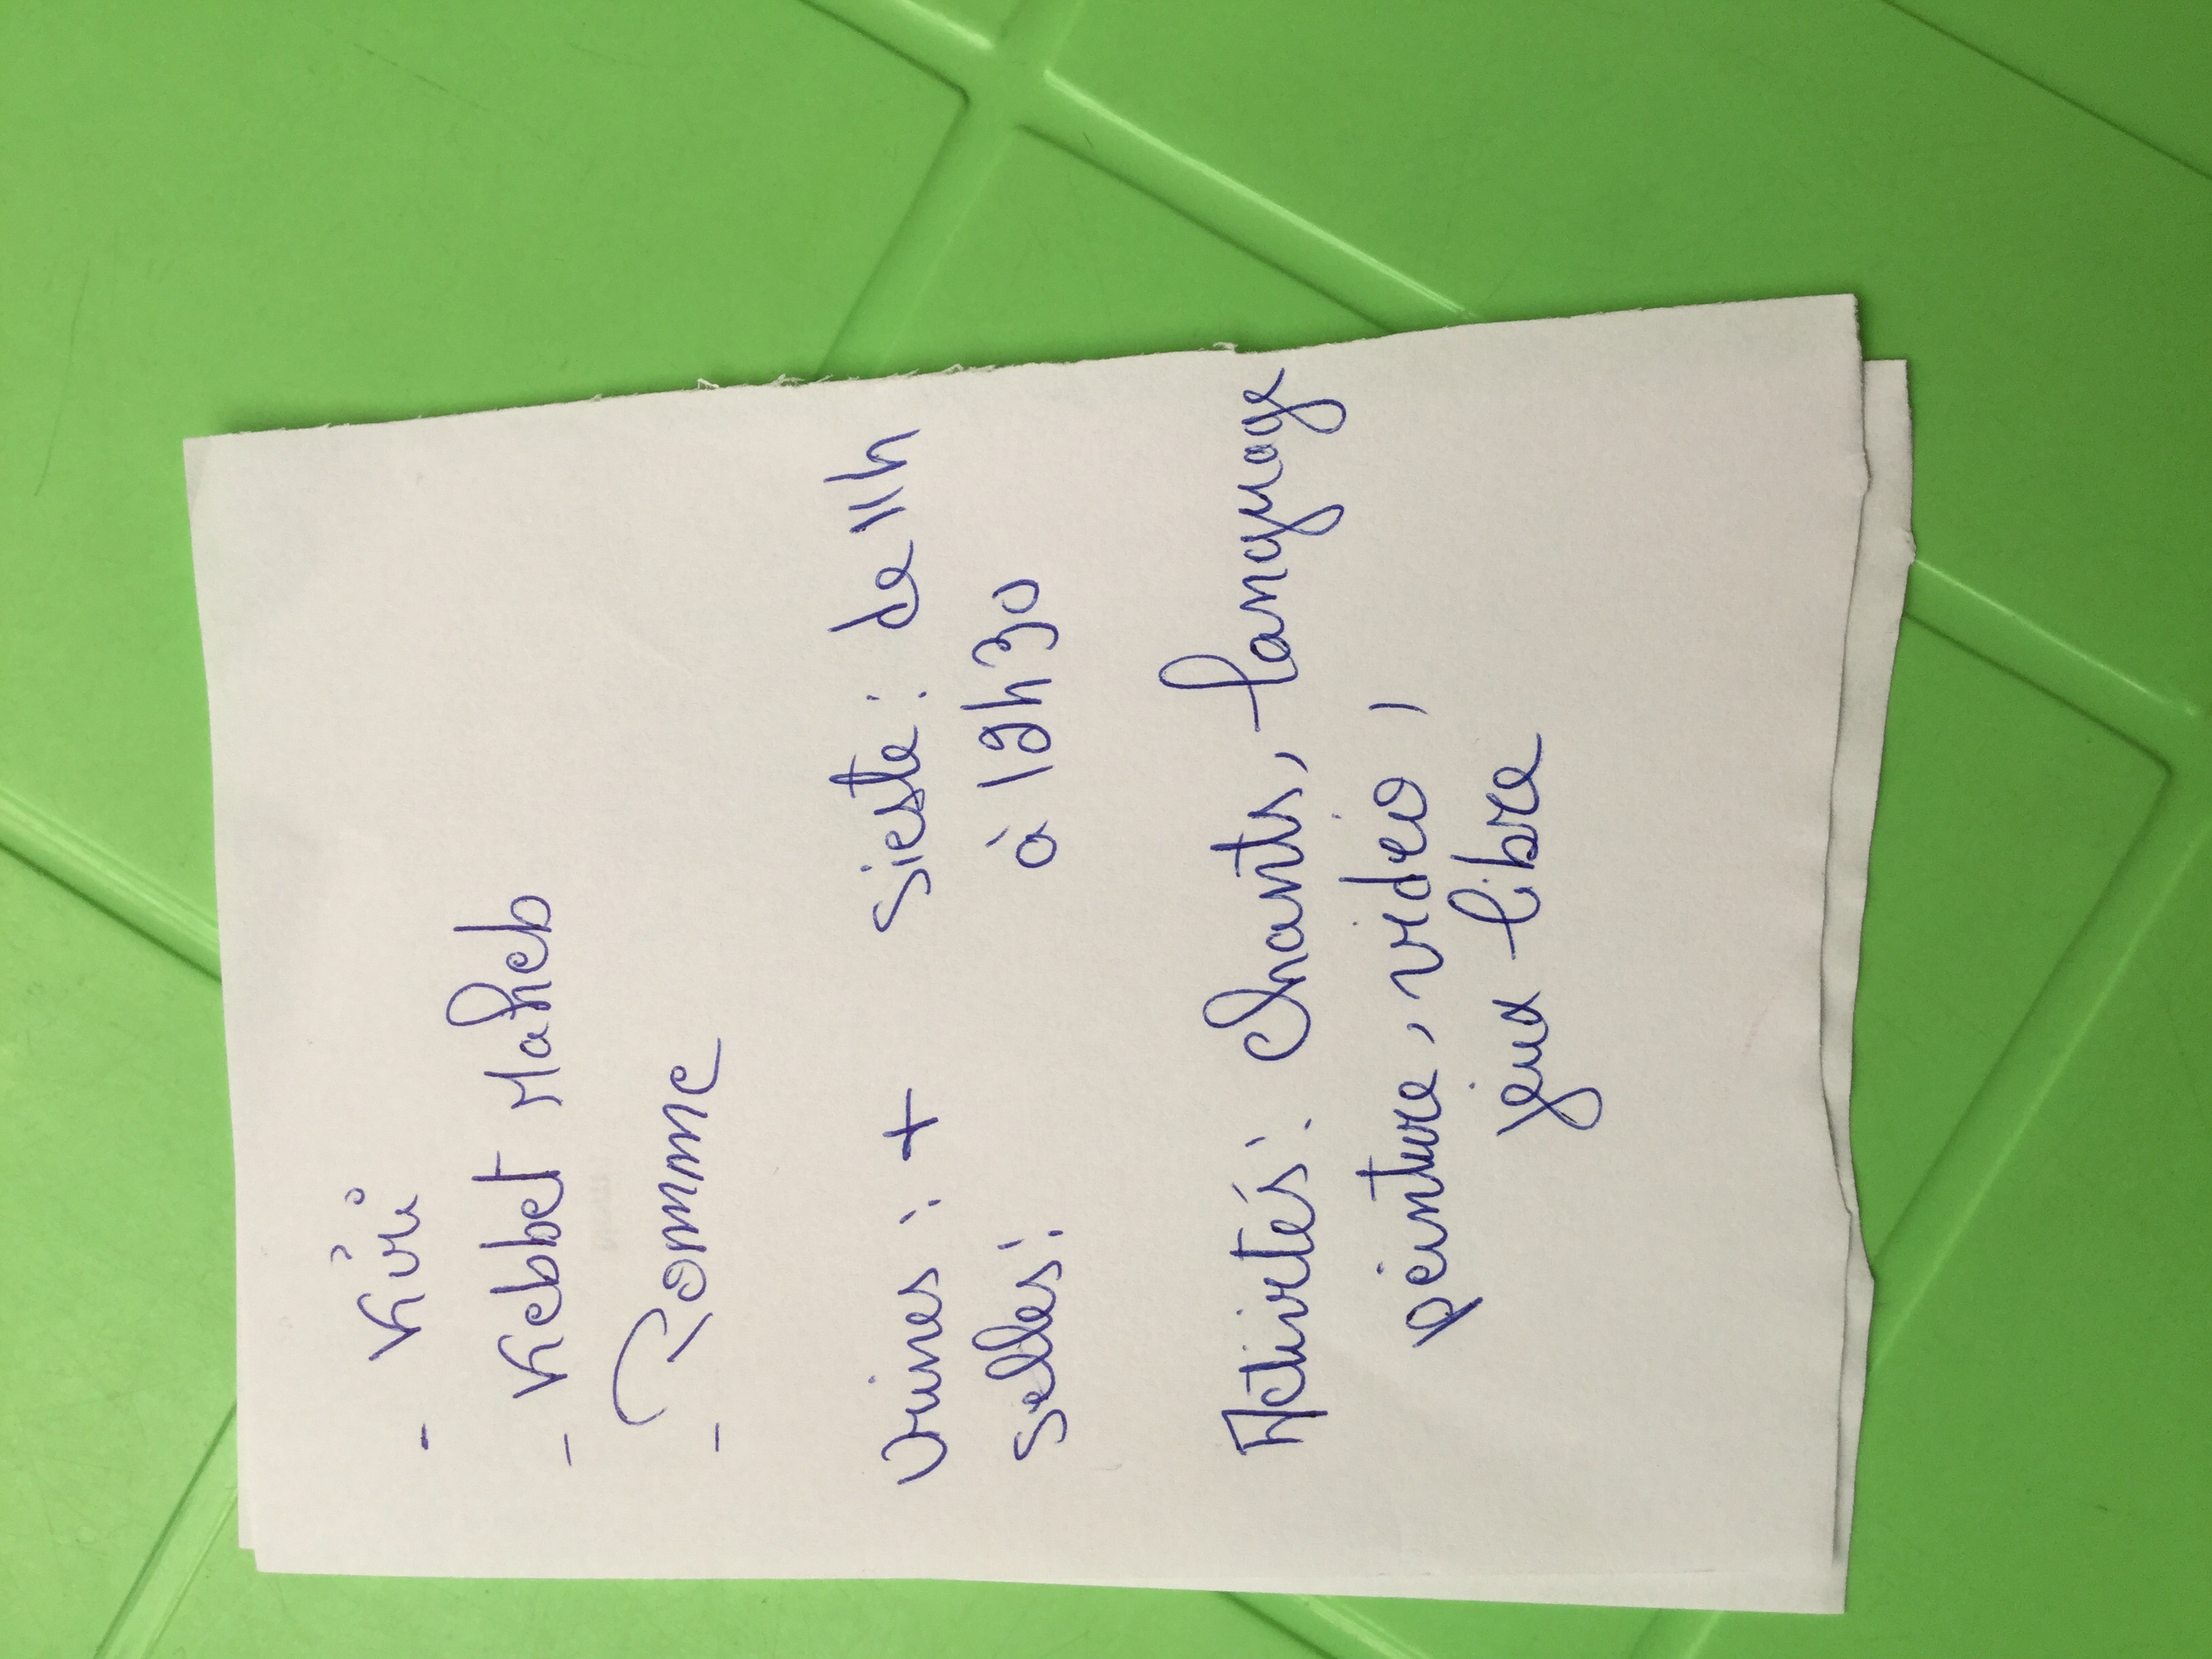 - Kiri
- Kebbet Maheb
- Pomme
Urines : + Sieste : de 11h
Selles : à 12h30
Activités : Chants, language
peinture, vidéo,
jeux libre